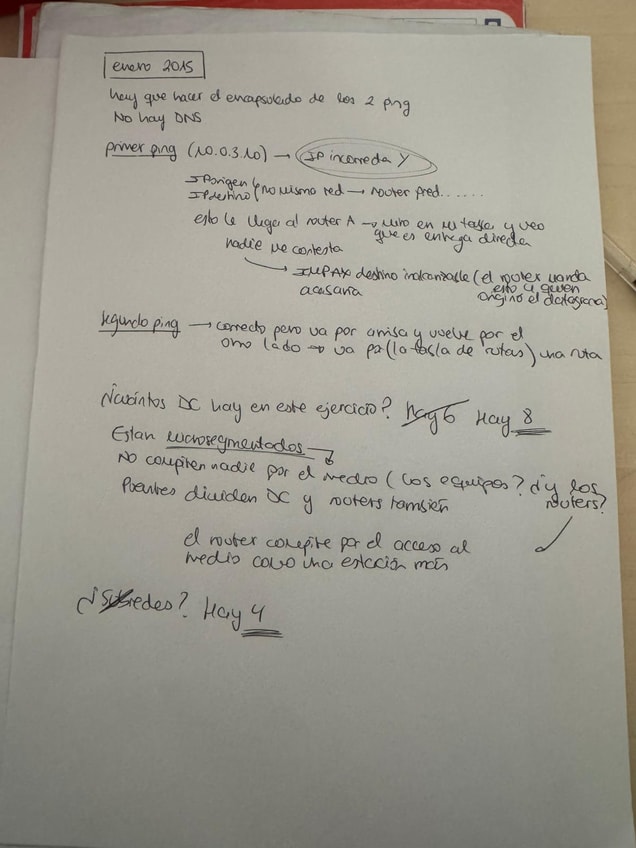 enero 2015
hay que hacer el encapsulado de los 2 ping
No hay DNS
primer ping (10.0.3.10) → IP incorrecta Y
IPorigen
IPdestino no misma red → router pred.......
esto le llega al router A → miro en mi tabla y veo
que es entrega directa
nadie me contesta
destino inalcanzable (el router manda
esto a quien
originó el datagrama)
segundo ping → correcto pero va por arriba y vuelve por el
otro lado → va por (la tabla de rutas) una ruta
¿Cuántos DC hay en este ejercicio? Hay 6 Hay 8
Estan microsegmentados
No compiten nadie por el medio (los equipos? ¿y los
routers?
Puentes dividen DC y routers también
el router compite por el acceso al
medio como una estación más
¿Subredes? Hay 4